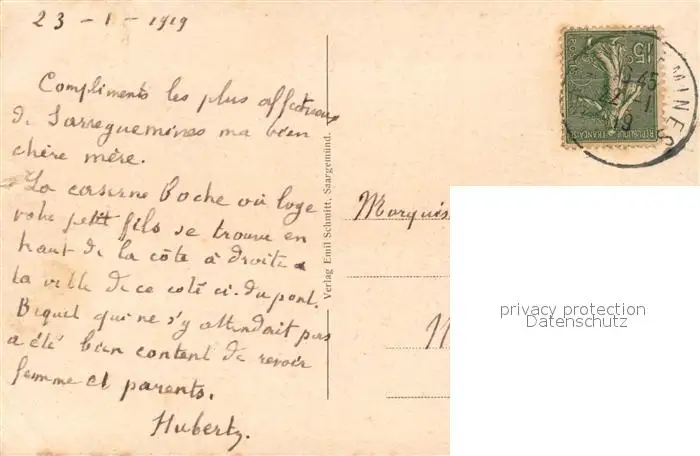 23 - 1 - 1919
Compliments les plus affectueux
de Sarreguemines ma bien
chère mère.
La caserne boche où loge
votre petit fils se trouve en
haut de la côte à droite
la ville de ce coté ci du pont.
qui ne s'y attendait pas
a été bien content de revoir
femme et parents.
Hubert
Verlag Emil Schmitt, Saargemünd.
15c
POSTES
REPUBLIQUE FRANÇAISE
MINES
45
22 - 1
19
Marquis
privacy protection
Datenschutz